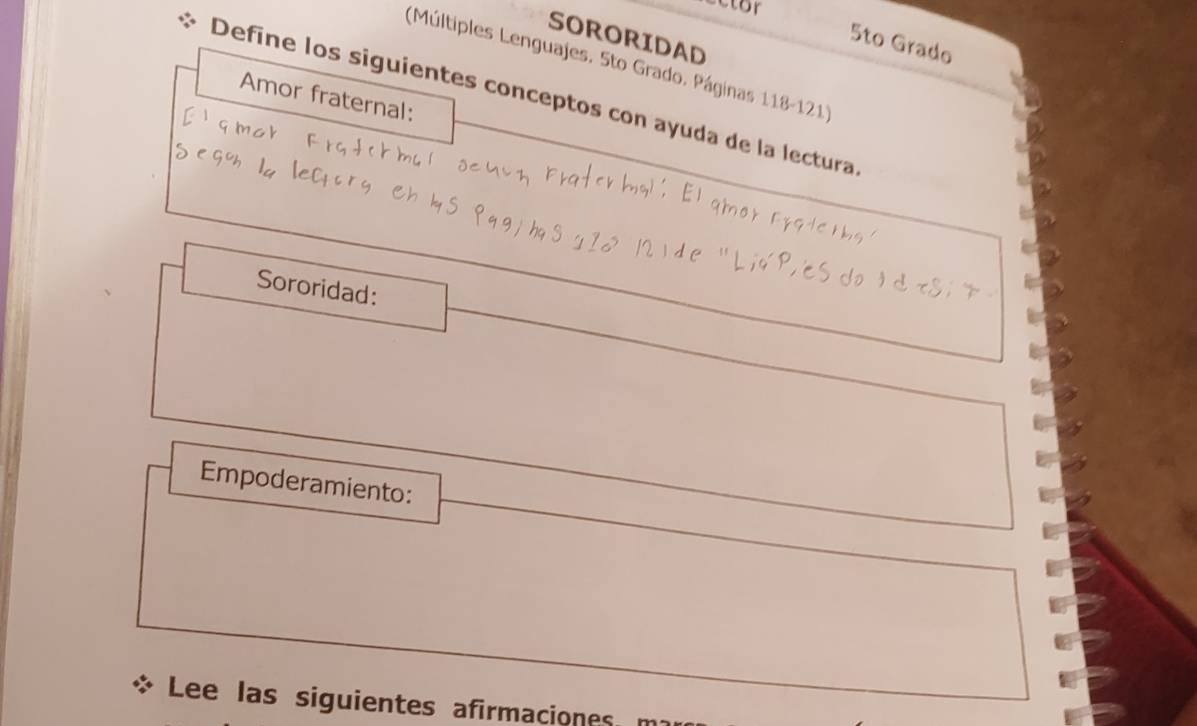 5to Grado
SORORIDAD
(Múltiples Lenguajes. 5to Grado. Páginas 118-121)
❖ Define los siguientes conceptos con ayuda de la lectura.
Amor fraternal:
El amor Fraternal Fraternal: El amor Fraternal
Segun la lectura en las Paginas
Sororidad:
Empoderamiento:
❖ Lee las siguientes afirmaciones